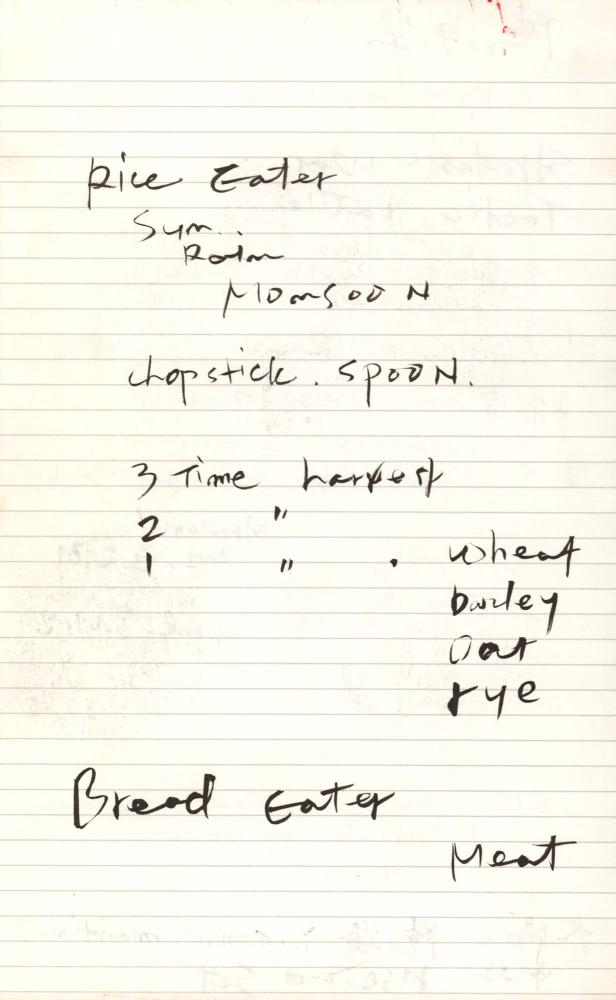 Rice Eater
Sun..
Rain
MonsooN
chopstick. spooN.
3 Time harvest
2 "
1 " . wheat
barley
Oat
rye
Bread Eater
Meat